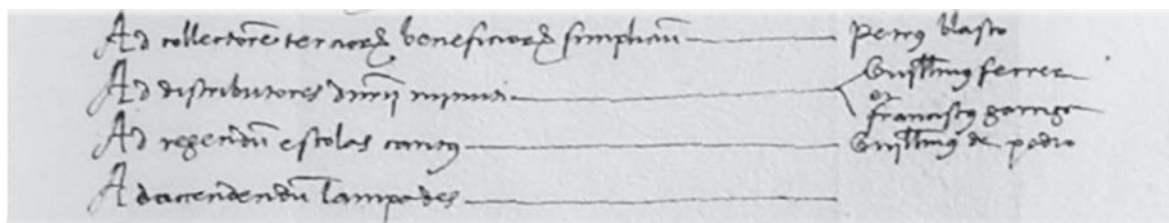 Ad collectorẽ terciorꝝ beneficiorꝝ simpliciũ Petrus blasco
Ad distributores dimij minuti Guillm̃us ferrer
et
franciscus garrigo
Ad regendũ escolas cantus Guillm̃us de pedro
Ad accendendũ lampades